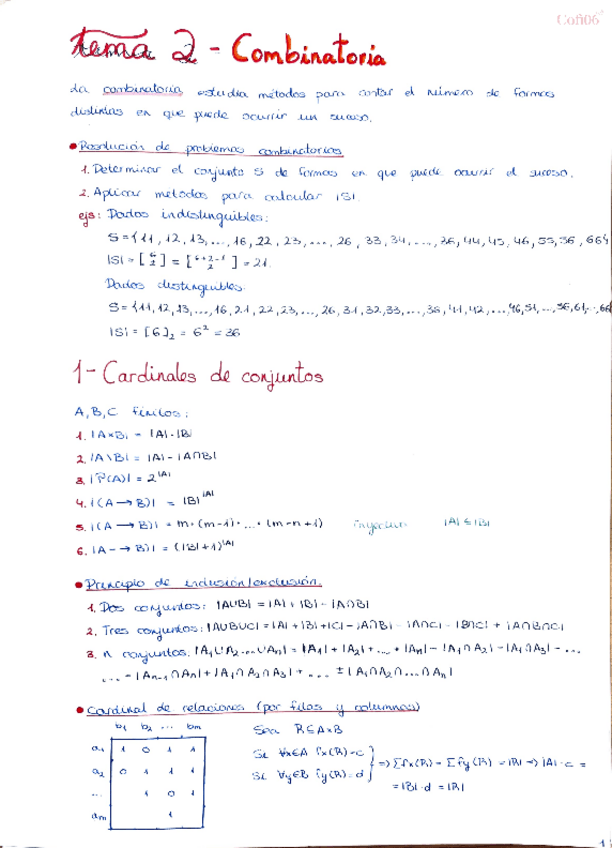 Coñ06
Tema 2 - Combinatoria
La combinatoria estudia métodos para contar el número de formas
distintas en que puede ocurrir un suceso.
• Resolución de problemas combinatorios
1. Determinar el conjunto S de formas en que puede ocurrir el suceso.
2. Aplicar métodos para calcular |S|.
ejs: Dados indistinguibles:
S = {11, 12, 13, ..., 16, 22, 23, ..., 26, 33, 34, ..., 36, 44, 45, 46, 55, 56, 66}
|S| = [6 2] = [6+2-1 2] = 21
Dados distinguibles:
S = {11, 12, 13, ..., 16, 21, 22, 23, ..., 26, 31, 32, 33, ..., 36, 41, 42, ..., 46, 51, ..., 56, 61, ..., 66
|S| = [6]₂ = 6² = 36
1- Cardinales de conjuntos
A, B, C finitos:
1. |A×B| = |A|·|B|
2. |A\B| = |A| - |A∩B|
3. |P(A)| = 2^|A|
4. |(A → B)| = |B|^|A|
5. |(A → B)| = m·(m-1)·...·(m-n+1) inyectivas |A| ≤ |B|
6. |A - → B)| = (|B|+1)^|A|
• Principio de inclusión/exclusión.
1. Dos conjuntos: |A∪B| = |A| + |B| - |A∩B|
2. Tres conjuntos: |A∪B∪C| = |A| + |B| + |C| - |A∩B| - |A∩C| - |B∩C| + |A∩B∩C|
3. n conjuntos: |A₁∪A₂...∪Aₙ| = |A₁| + |A₂| + ... + |Aₙ| - |A₁∩A₂| - |A₁∩A₃| - ...
... - |Aₙ₋₁∩Aₙ| + |A₁∩A₂∩A₃| + ... ± |A₁∩A₂∩...∩Aₙ|
• Cardinal de relaciones (por filas y columnas)
b₁ b₂ ... bₘ
a₁ 1 0 1 1
a₂ 0 1 1 1
... 1 0 1
aₘ 1
Sea R⊆A×B
Si ∀x∈A fx(R)=c
Si ∀y∈B fy(R)=d
⇒ Σfx(R) = Σfy(R) = |R| ⇒ |A|·c =
= |B|·d = |R|
1